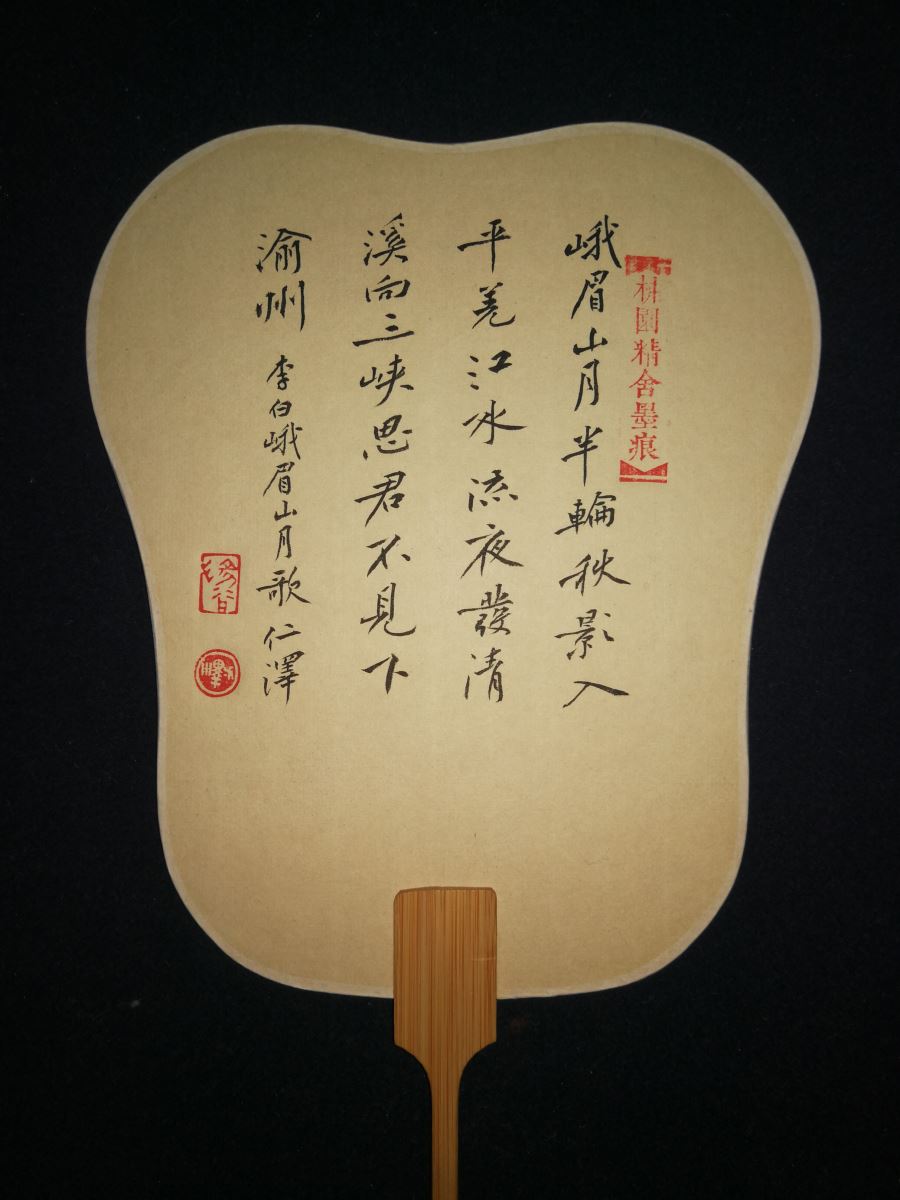 園精舍墨痕
峨眉山月半輪秋影入
平羌江水流夜發清
溪向三峽思君不見下
渝州 李白峨眉山月歌 仁澤